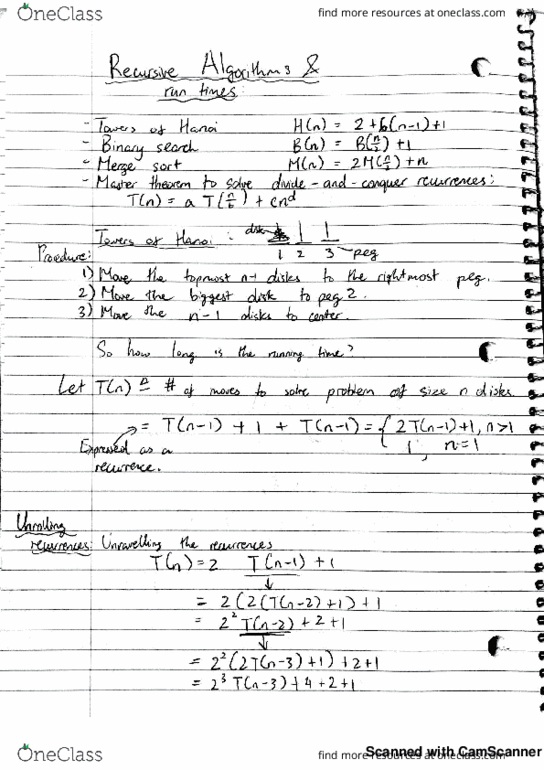 OneClass
find more resources at oneclass.com
Recursive Algorithms &
run times:
- Towers of Hanoi H(n) = 2+6(n-1)+1
- Binary search B(n) = B(n/2) +1
- Merge sort M(n) = 2M(n/2) +n
- Master theorem to solve divide-and-conquer recurrences:
T(n) = a T(n/b) + cn^d
Towers of Hanoi : disk
1 2 3 peg
Procedure:
1) Move the topmost n-1 disks to the rightmost peg.
2) Move the biggest disk to peg 2.
3) Move the n-1 disks to center.
So how long is the running time?
Let T(n) = # of moves to solve problem of size n disks.
= T(n-1) + 1 + T(n-1) = { 2T(n-1)+1, n>1
1, n=1
Expressed as a
recurrence.
Unrolling
recurrences: Unravelling the recurrences
T(n) = 2 T(n-1) +1
= 2(2(T(n-2)+1)+1
= 2^2 T(n-2) + 2 +1
= 2^2(2T(n-3)+1)+2+1
= 2^3 T(n-3)+4+2+1
OneClass
find more resources at oneclass.com
Scanned with CamScanner